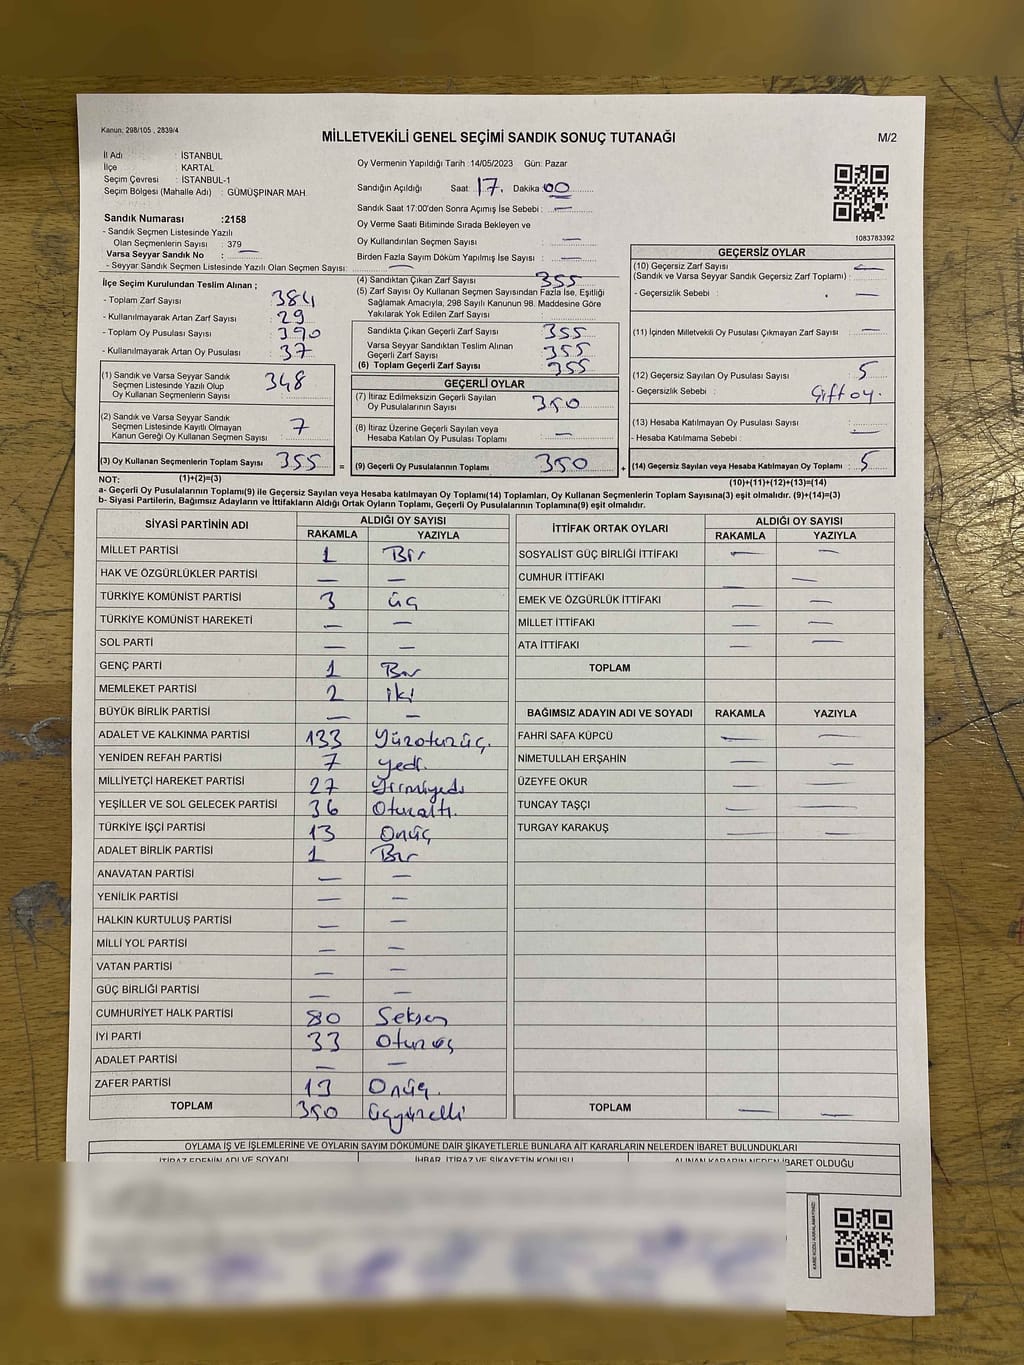 Kanun: 298/105 , 2839/4
MİLLETVEKİLİ GENEL SEÇİMİ SANDIK SONUÇ TUTANAĞI
M/2
İl Adı : İSTANBUL
İlçe : KARTAL
Seçim Çevresi : İSTANBUL-1
Seçim Bölgesi (Mahalle Adı) : GÜMÜŞPINAR MAH.
Oy Vermenin Yapıldığı Tarih :14/05/2023 Gün: Pazar
Sandığın Açıldığı Saat 17. Dakika 00
Sandık Saat 17:00'den Sonra Açımış İse Sebebi : —
Oy Verme Saati Bitiminde Sırada Bekleyen ve
Oy Kullandırılan Seçmen Sayısı —
Birden Fazla Sayım Döküm Yapılmış İse Sayısı : —
Sandık Numarası :2158
- Sandık Seçmen Listesinde Yazılı
Olan Seçmenlerin Sayısı : 379
Varsa Seyyar Sandık No : —
- Seyyar Sandık Seçmen Listesinde Yazılı Olan Seçmen Sayısı: —
1083783392
İlçe Seçim Kurulundan Teslim Alınan ;
- Toplam Zarf Sayısı : 384
- Kullanılmayarak Artan Zarf Sayısı : 29
- Toplam Oy Pusulası Sayısı : 390
- Kullanılmayarak Artan Oy Pusulası : 37
(1) Sandık ve Varsa Seyyar Sandık
Seçmen Listesinde Yazılı Olup
Oy Kullanan Seçmenlerin Sayısı 348
(2) Sandık ve Varsa Seyyar Sandık
Seçmen Listesinde Kayıtlı Olmayan
Kanun Gereği Oy Kullanan Seçmen Sayısı : 7
(3) Oy Kullanan Seçmenlerin Toplam Sayısı 355 =
(4) Sandıktan Çıkan Zarf Sayısı 355
(5) Zarf Sayısı Oy Kullanan Seçmen Sayısından Fazla İse, Eşitliği
Sağlamak Amacıyla, 298 Sayılı Kanunun 98. Maddesine Göre
Yakılarak Yok Edilen Zarf Sayısı :
Sandıkta Çıkan Geçerli Zarf Sayısı 355
Varsa Seyyar Sandıktan Teslim Alınan
Geçerli Zarf Sayısı 355
(6) Toplam Geçerli Zarf Sayısı 355
GEÇERLİ OYLAR
(7) İtiraz Edilmeksizin Geçerli Sayılan
Oy Pusulalarının Sayısı : 350
(8) İtiraz Üzerine Geçerli Sayılan veya
Hesaba Katılan Oy Pusulası Toplamı —
(9) Geçerli Oy Pusulalarının Toplamı 350 +
GEÇERSİZ OYLAR
(10) Geçersiz Zarf Sayısı —
(Sandık ve Varsa Seyyar Sandık Geçersiz Zarf Toplamı) :
- Geçersizlik Sebebi : —
(11) İçinden Milletvekili Oy Pusulası Çıkmayan Zarf Sayısı : —
(12) Geçersiz Sayılan Oy Pusulası Sayısı : 5
- Geçersizlik Sebebi : Çift oy.
(13) Hesaba Katılmayan Oy Pusulası Sayısı : —
- Hesaba Katılmama Sebebi :
(14) Geçersiz Sayılan veya Hesaba Katılmayan Oy Toplamı : 5
NOT: (1)+(2)=(3)
(10)+(11)+(12)+(13)=(14)
a- Geçerli Oy Pusulalarının Toplamı(9) ile Geçersiz Sayılan veya Hesaba katılmayan Oy Toplamı(14) Toplamları, Oy Kullanan Seçmenlerin Toplam Sayısına(3) eşit olmalıdır. (9)+(14)=(3)
b- Siyasi Partilerin, Bağımsız Adayların ve İttifakların Aldığı Ortak Oyların Toplamı, Geçerli Oy Pusulalarının Toplamına(9) eşit olmalıdır.
SİYASİ PARTİNİN ADI ALDIĞI OY SAYISI
RAKAMLA YAZIYLA
MİLLET PARTİSİ 1 Bir
HAK VE ÖZGÜRLÜKLER PARTİSİ — —
TÜRKİYE KOMÜNİST PARTİSİ 3 üç
TÜRKİYE KOMÜNİST HAREKETİ — —
SOL PARTİ — —
GENÇ PARTİ 1 Bir
MEMLEKET PARTİSİ 2 iki
BÜYÜK BİRLİK PARTİSİ — —
ADALET VE KALKINMA PARTİSİ 133 Yüzotuzüç.
YENİDEN REFAH PARTİSİ 7 yedi.
MİLLİYETÇİ HAREKET PARTİSİ 27 Yirmiyedi
YEŞİLLER VE SOL GELECEK PARTİSİ 36 Otuzaltı.
TÜRKİYE İŞÇİ PARTİSİ 13 Onüç
ADALET BİRLİK PARTİSİ 1 Bir
ANAVATAN PARTİSİ — —
YENİLİK PARTİSİ — —
HALKIN KURTULUŞ PARTİSİ — —
MİLLİ YOL PARTİSİ — —
VATAN PARTİSİ — —
GÜÇ BİRLİĞİ PARTİSİ — —
CUMHURİYET HALK PARTİSİ 80 Seksen
İYİ PARTİ 33 Otuzüç
ADALET PARTİSİ — —
ZAFER PARTİSİ 13 Onüç.
TOPLAM 350 üçyüzelli
İTTİFAK ORTAK OYLARI ALDIĞI OY SAYISI
RAKAMLA YAZIYLA
SOSYALİST GÜÇ BİRLİĞİ İTTİFAKI — —
CUMHUR İTTİFAKI — —
EMEK VE ÖZGÜRLÜK İTTİFAKI — —
MİLLET İTTİFAKI — —
ATA İTTİFAKI — —
TOPLAM
BAĞIMSIZ ADAYIN ADI VE SOYADI RAKAMLA YAZIYLA
FAHRİ SAFA KÜPCÜ — —
NİMETULLAH ERŞAHİN — —
ÜZEYFE OKUR — —
TUNCAY TAŞÇI — —
TURGAY KARAKUŞ — —
TOPLAM — —
OYLAMA İŞ VE İŞLEMLERİNE VE OYLARIN SAYIM DÖKÜMÜNE DAİR ŞİKAYETLERLE BUNLARA AİT KARARLARIN NELERDEN İBARET BULUNDUKLARI
İTİRAZ EDENİN ADI VE SOYADI İHBAR, İTİRAZ VE ŞİKAYETİN KONUSU ALINAN KARARIN NEDEN İBARET OLDUĞU
KARE KODU KARALAMAYINIZ!